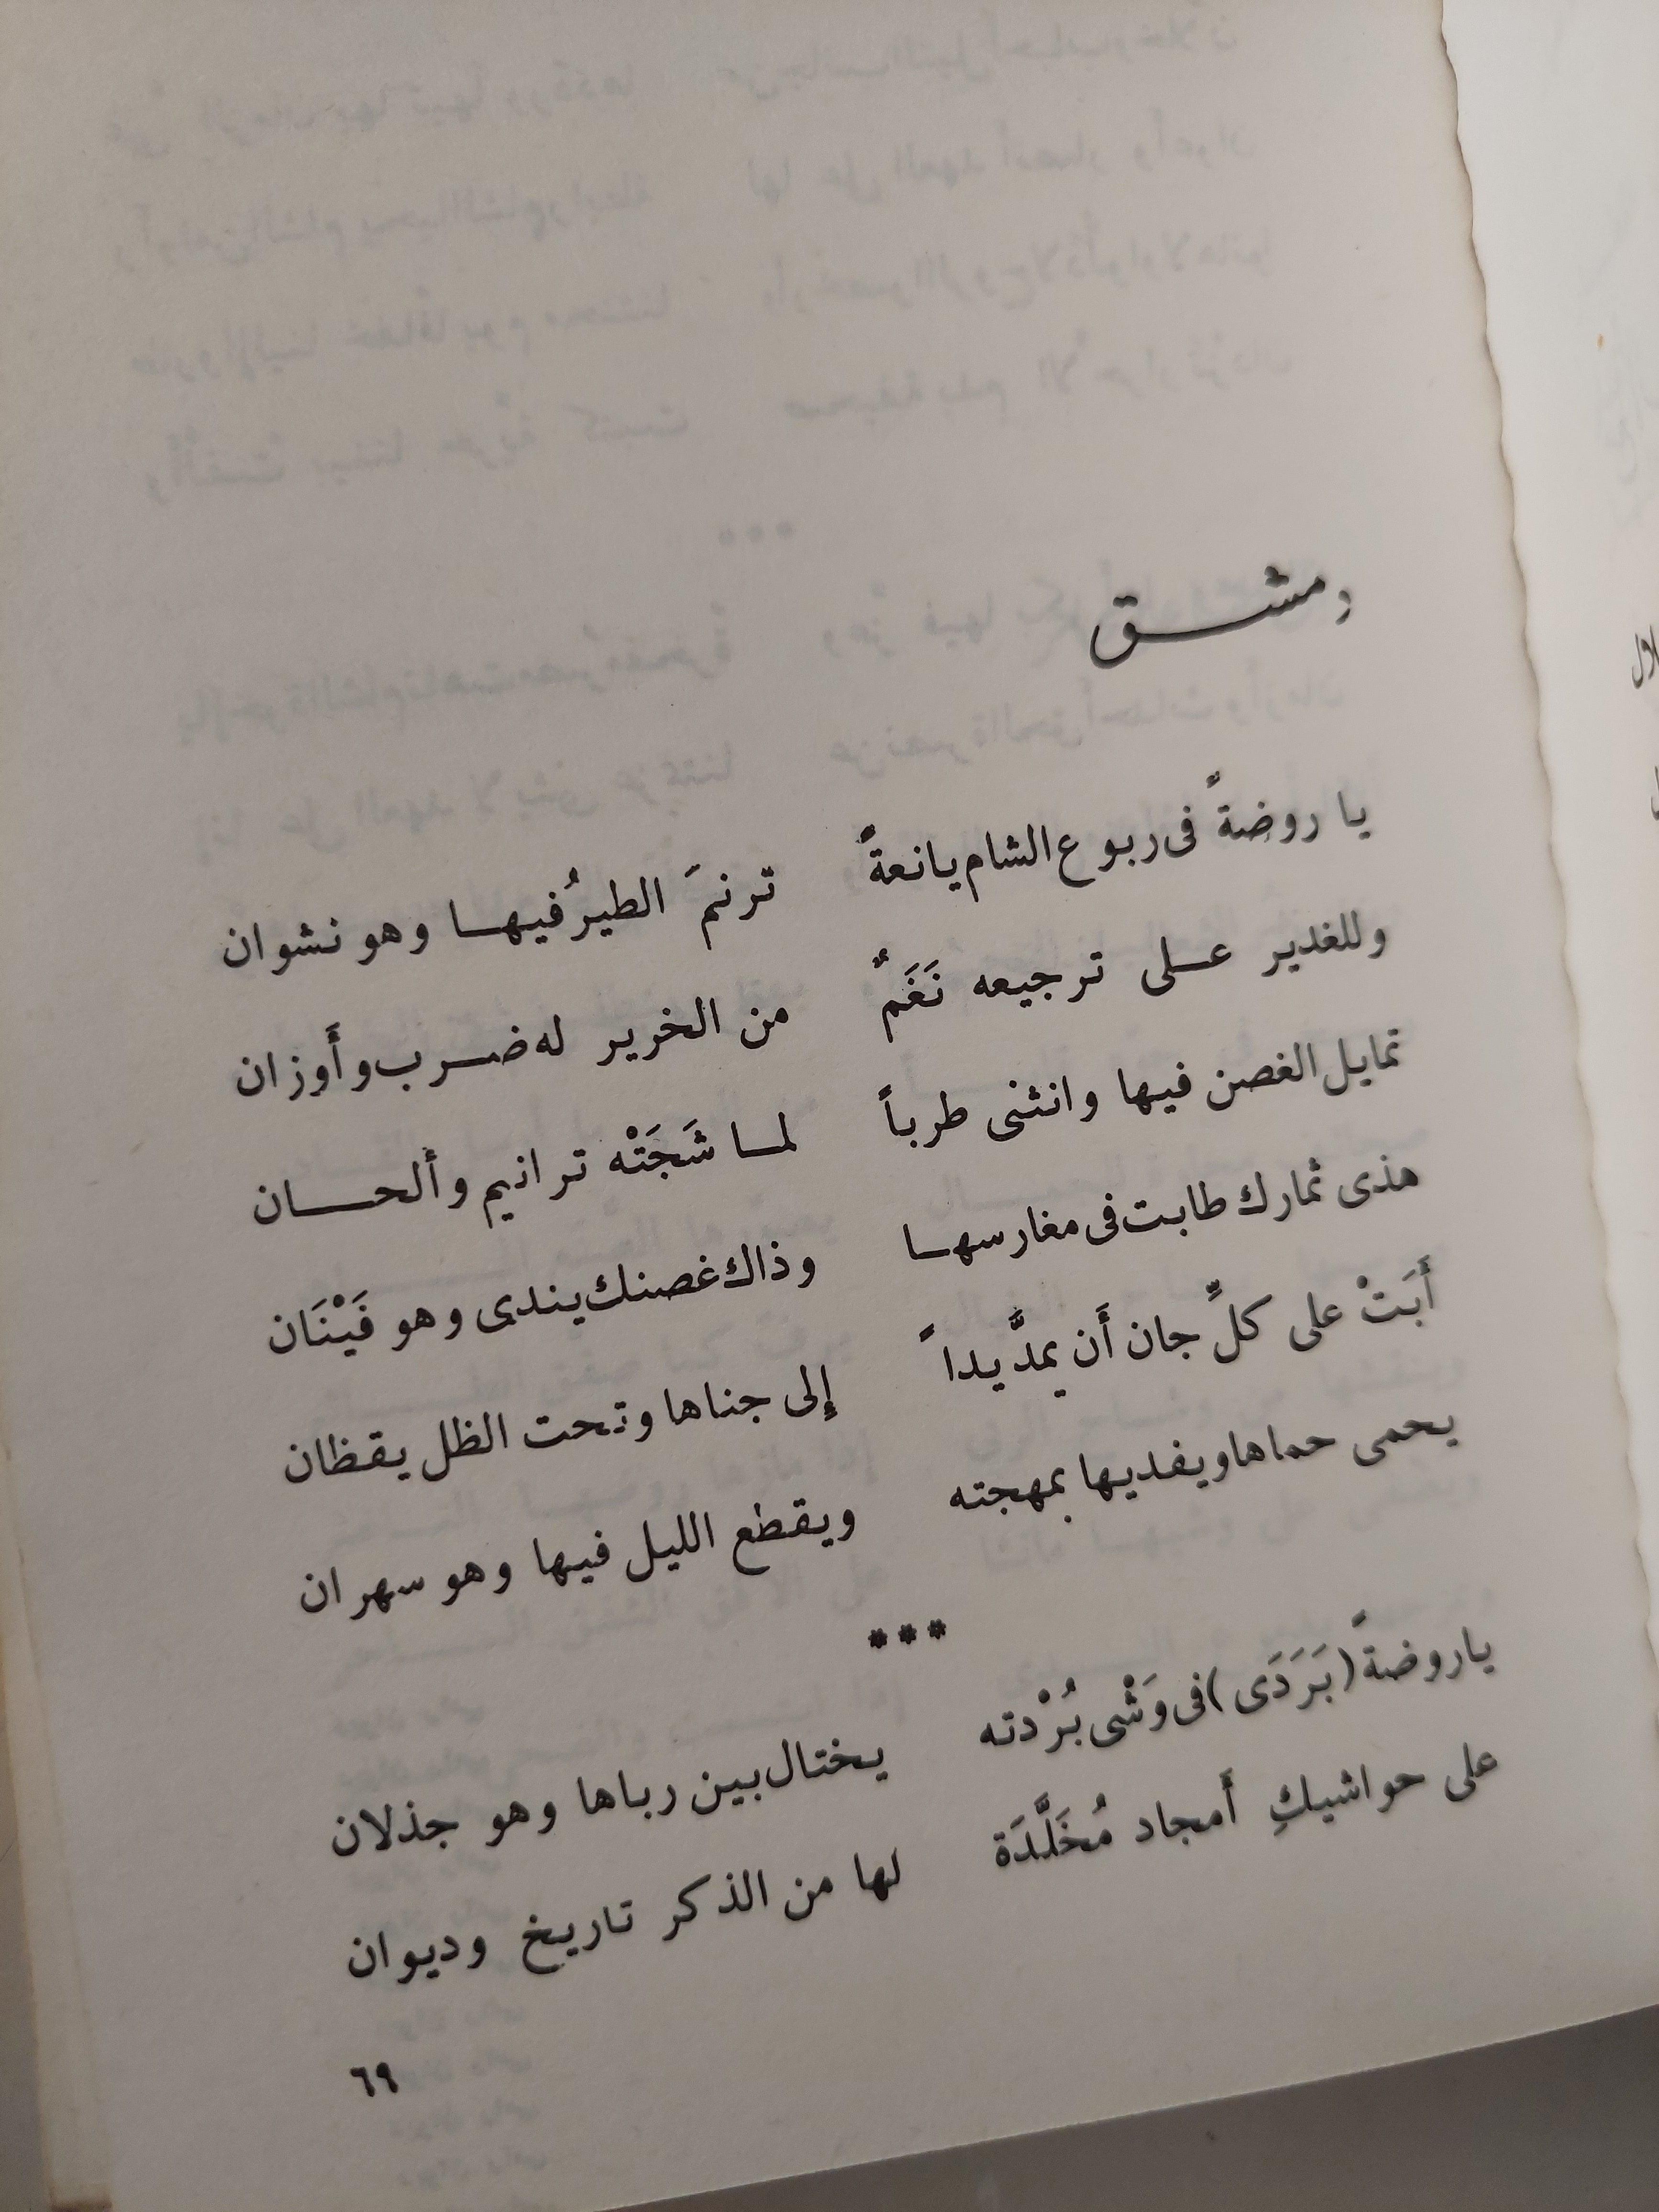 دمشق
يا روضةً فى ربوع الشام يانعةً ترنمَ الطيرُ فيها وهو نشوان
وللغدير على ترجيعه نَغَمٌ من الخرير له ضرب وأَوزان
تمايل الغصن فيها وانثنى طرباً لما شَجَتْه ترانيم وألحان
هذى ثمارك طابت فى مغارسها وذاك غصنك يندى وهو فَيْنَان
أَبَتْ على كلِّ جان أَن يمدَّ يداً إلى جناها وتحت الظل يقظان
يحمى حماها ويفديها بمهجته ويقطع الليل فيها وهو سهران
***
يا روضةً (بَرَدَى) فى وَشْى بُرْدته يختال بين رباها وهو جذلان
على حواشيكِ أَمجاد مُخَلَّدَة لها من الذكر تاريخ وديوان
٦٩